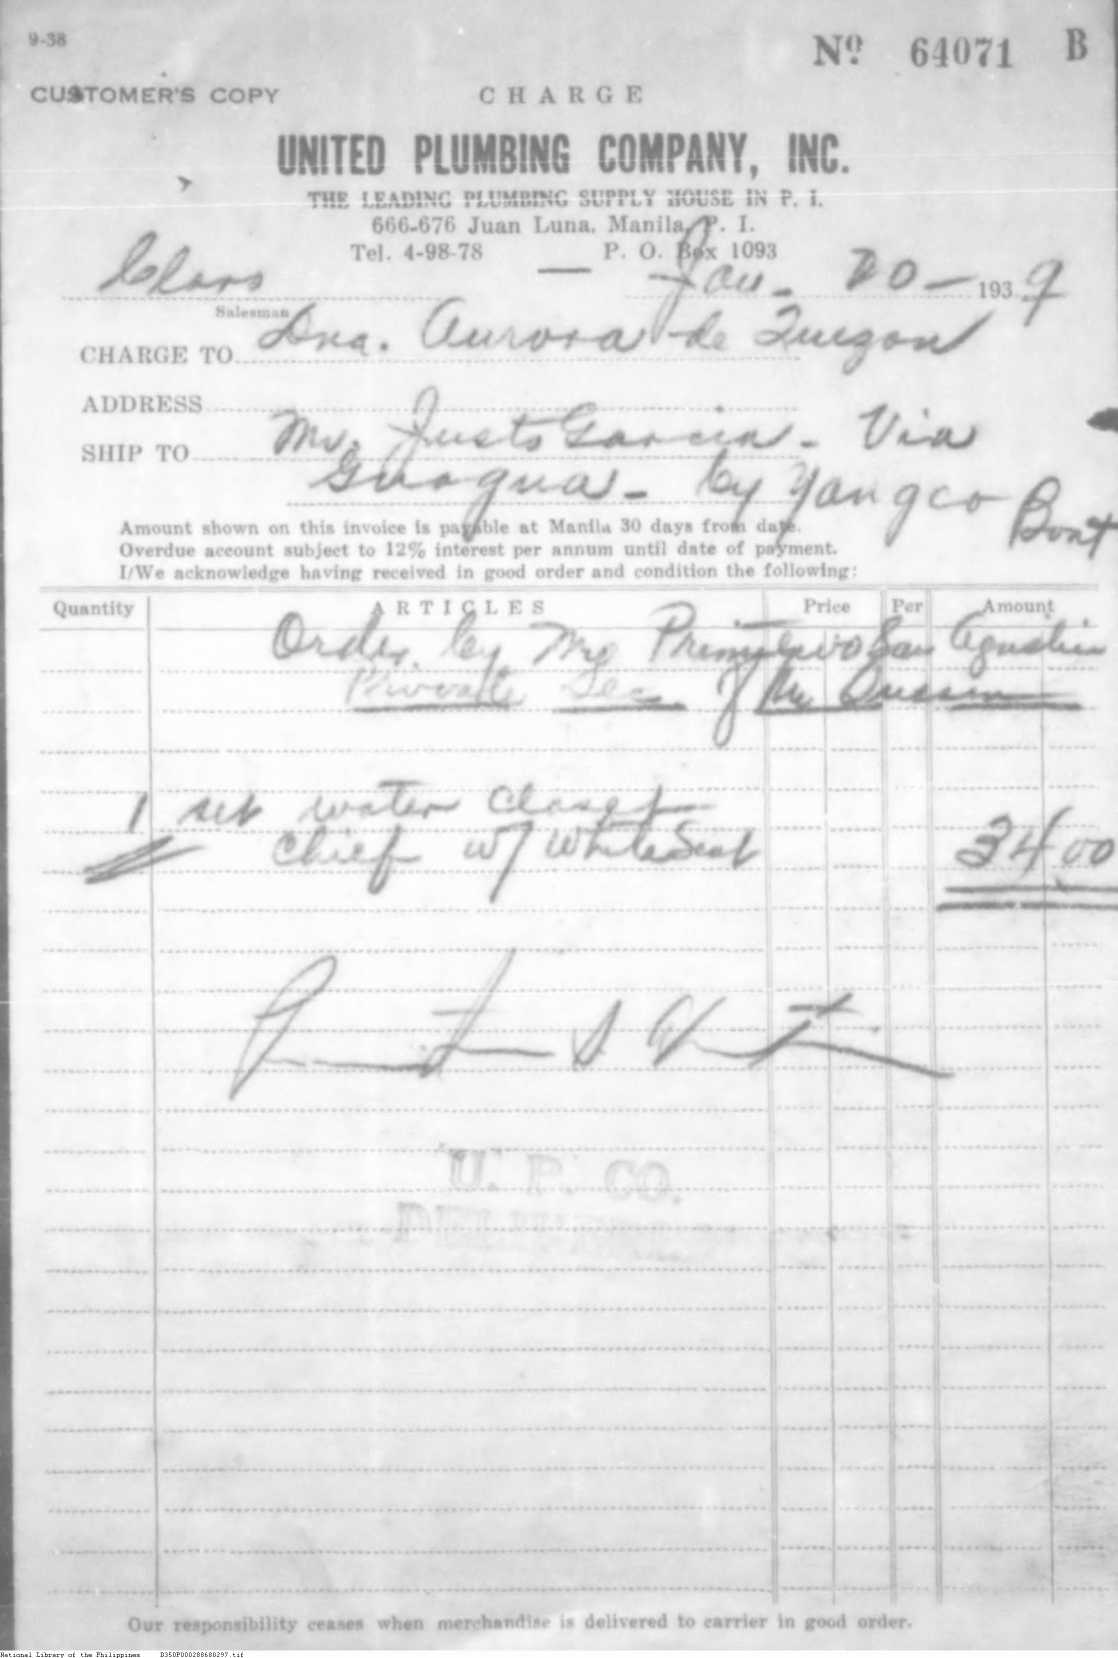 9-38
Nº 64071 B
CUSTOMER'S COPY
CHARGE
UNITED PLUMBING COMPANY, INC.
THE LEADING PLUMBING SUPPLY HOUSE IN P. I.
666-676 Juan Luna, Manila, P. I.
Tel. 4-98-78 P. O. Box 1093
Jan. 20 - 1939
Salesman
CHARGE TO Dna. Aurora de Quezon
ADDRESS
SHIP TO Mr. Justo Garcia - Via
Guagua - by Yangco Boat
Amount shown on this invoice is payable at Manila 30 days from date.
Overdue account subject to 12% interest per annum until date of payment.
I/We acknowledge having received in good order and condition the following:
Quantity ARTICLES Price Per Amount
Order by Mr Primitivo San Agustin
Private Sec. of Mr Quezon
1 set water closet
Chief w/ White Seat 34 00
U. P. CO.
Our responsibility ceases when merchandise is delivered to carrier in good order.
National Library of the Philippines B350P000288680297.tif